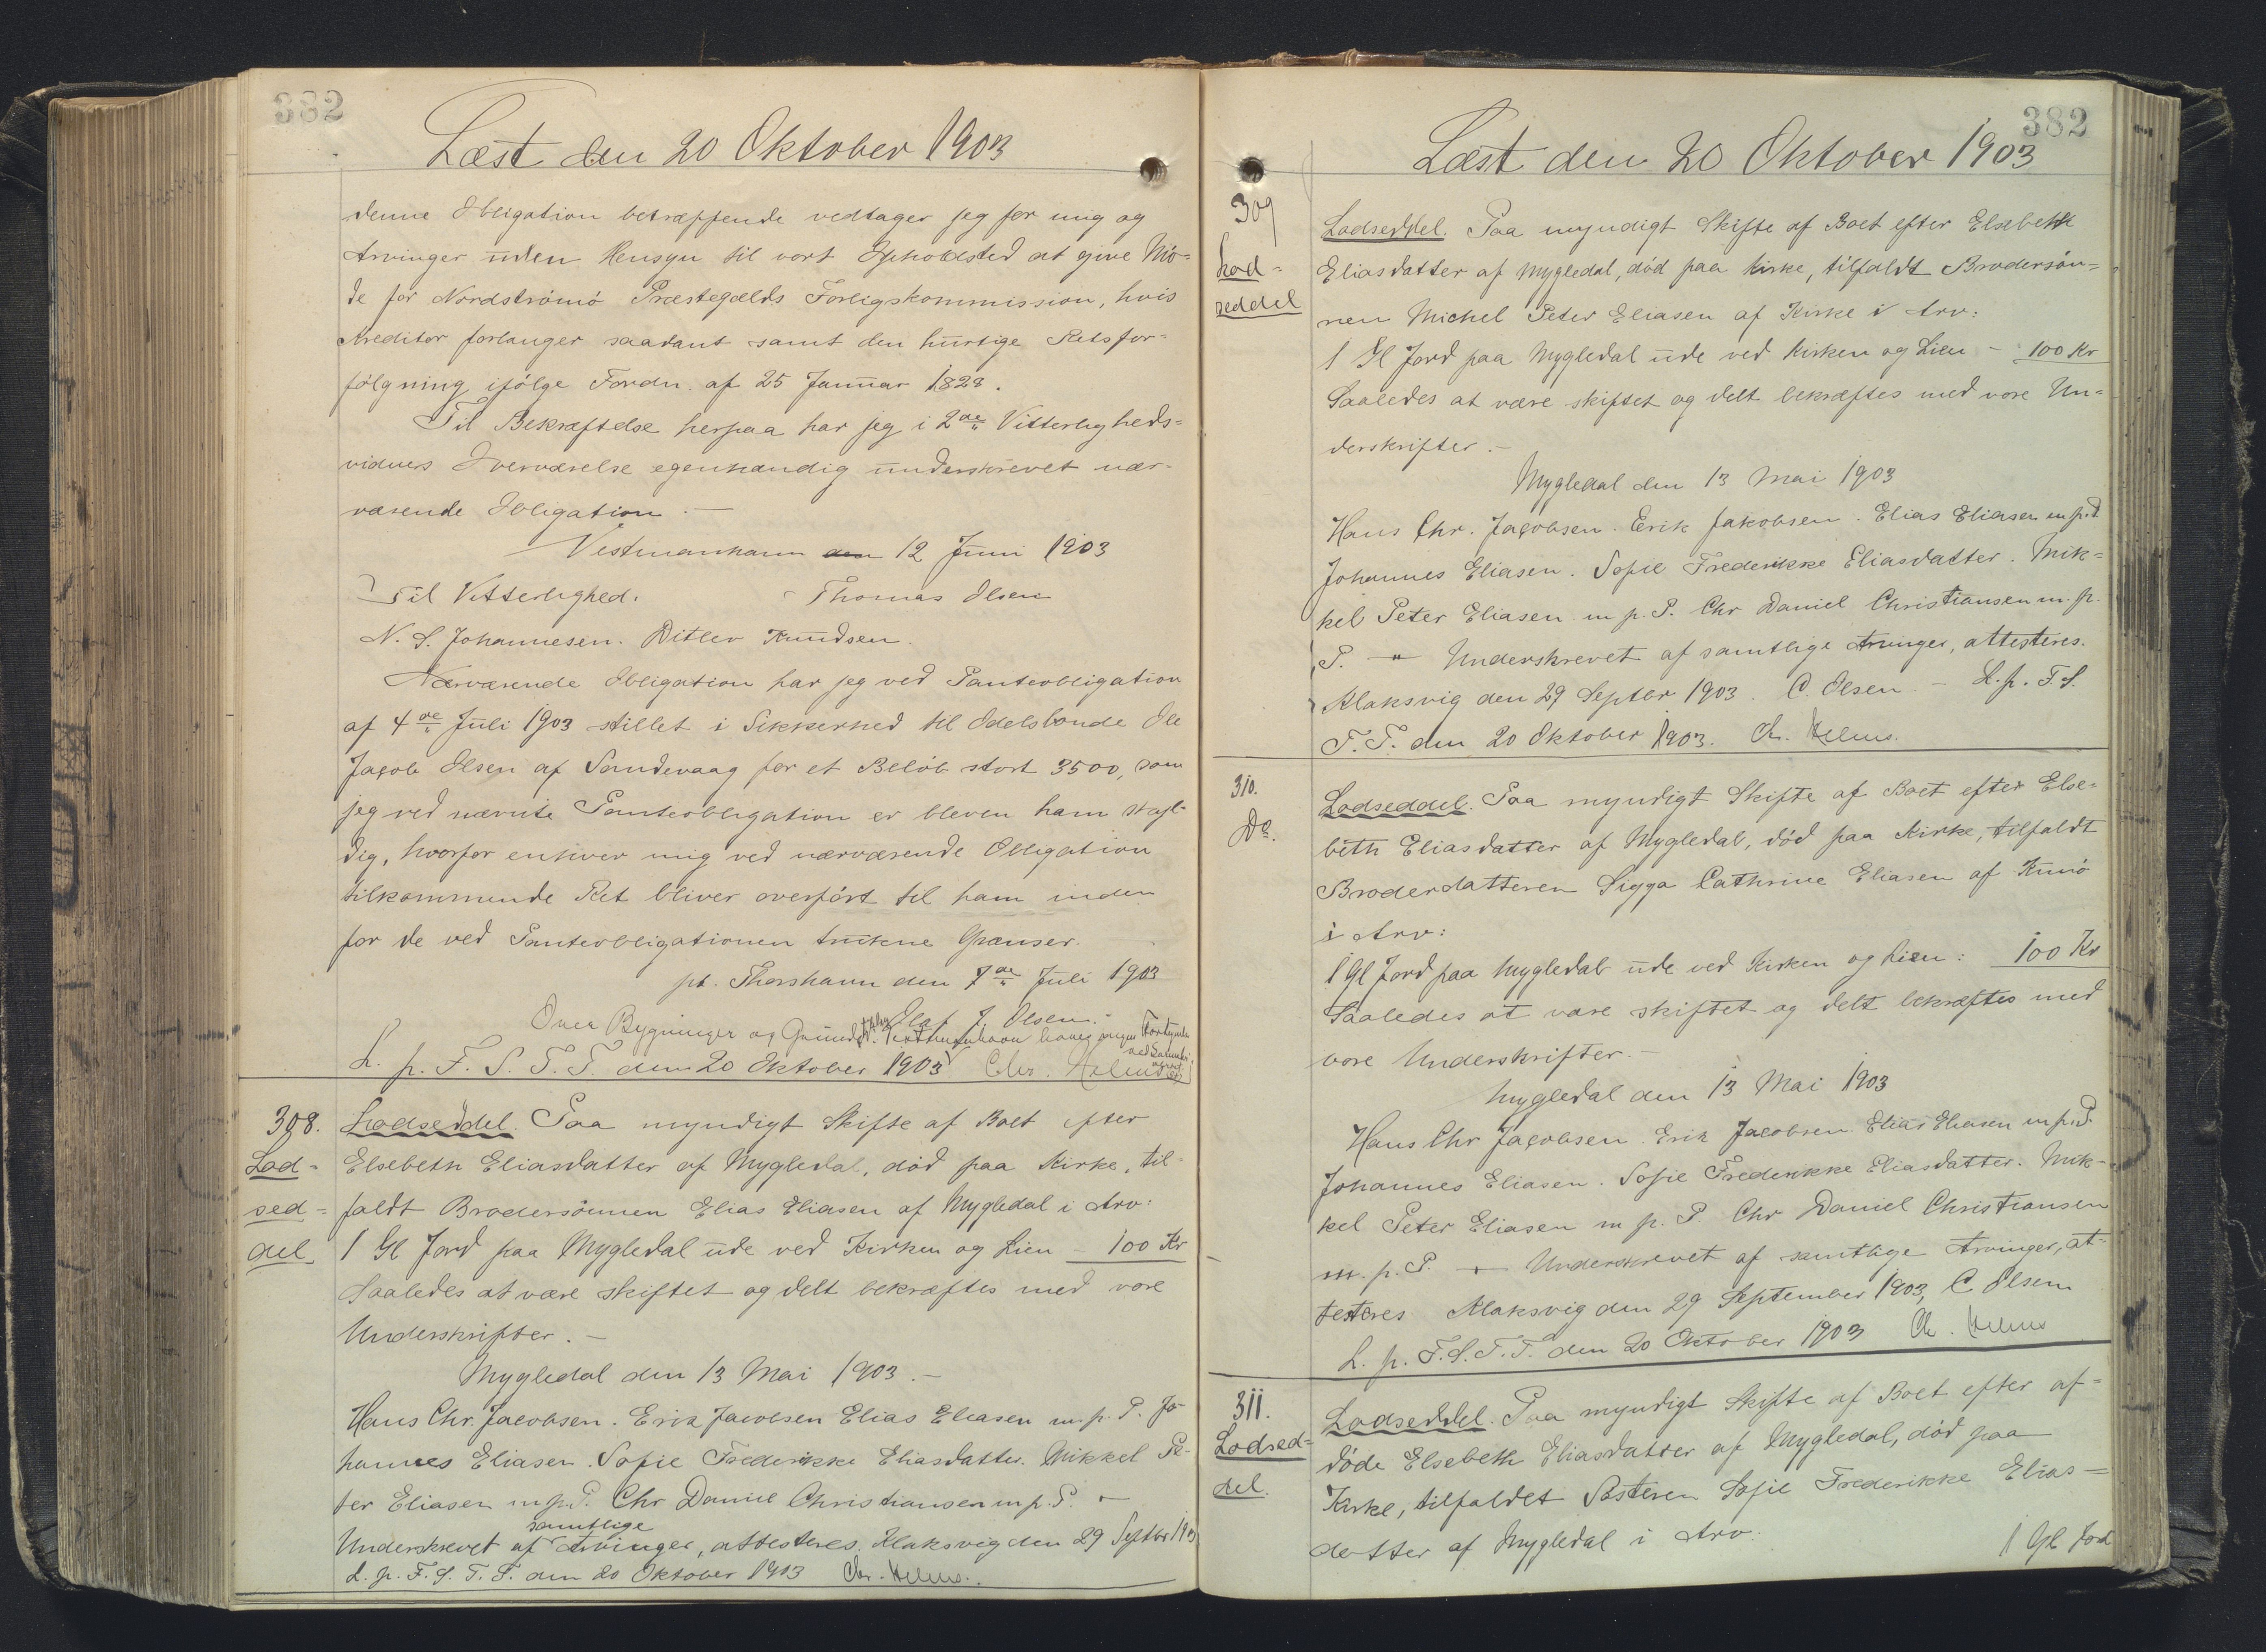 382
Læst den 20 Oktober 1903
denne Obligation betræffende vedtager jeg for mig og
Arvinger uden Hensyn til vort Opholdsted at give Mö=
de for Nordströmö Præstegælds Forligskommission, hvis
Kreditor forlanger saadant samt den hurtige Retsfor=
fölgning ifölge Fordn. af 25 Januar 1828.
Til Bekræftelse herpaa har jeg i 2de Vitterligheds=
vidners Overværelse egenhændig underskrevet nær-
værende Obligation. —
Vestmanhavn den 12 Juni 1903
Til Vitterlighed. Thomas Olsen
N. S. Johannesen. Ditlev Knudsen.
Nærværende Obligation har jeg ved Panteobligation
af 4de Juli 1903 stillet i Sikkerhed til Odelsbonde Ole
Jacob Olsen af Sandevaag for et Belöb stort 3500, som
jeg ved nævnte Panteobligation er bleven ham skyl-
dig, hvorfor enhver mig ved nærværende Obligation
tilkommende Ret bliver overfört til ham inden
for de ved Panteobligationen trukne Grænser.
pt. Thorshavn den 7de Juli 1903
Olaf J. Olsen.
Over Bygninger og Grundst. Vestmanhavn haves ingen
L. p. F. S. T. T. den 20 Oktober 1903 Chr. Helms
308. Lodseddel. Paa myndigt Skifte af Boet efter
Lod= Elsebeth Eliasdatter af Mygledal, död paa Kirke, til-
sed= faldt Brodersönnen Elias Eliasen af Mygledal i Arv:
del 1 Gl Jord paa Mygledal ude ved Kirken og Lien — 100 Kr
Saaledes at være skiftet og delt bekræftes med vore
Underskrifter. —
Mygledal den 13 Mai 1903. —
Hans Chr. Jacobsen. Erik Jacobsen Elias Eliasen m. p. P. Jo-
hannes Eliasen. Sofie Frederikke Eliasdatter. Mikkel Pe-
ter Eliasen m.p.P. Chr Daniel Christiansen m p. P. —
samtlige
Underskrevet af Arvinger, attesteres. Klaksvig den 29 Septbr 1903
L. p. F. S. T. T. den 20 Oktober 1903 Chr. Helms.
382
Læst den 20 Oktober 1903
309 Lodseddel. Paa myndigt Skifte af Boet efter Elsebeth
Lod= Eliasdatter af Mygledal, död paa Kirke, tilfaldt Brodersön=
seddel nen Michel Peter Eliasen af Kirke i Arv:
1 Gl Jord paa Mygledal ude ved Kirken og Lien — 100 Kr
Saaledes at være skiftet og delt bekræftes med vore Un=
derskrifter. —
Mygledal den 13 Mai 1903
Hans Chr. Jacobsen. Erik Jakobsen. Elias Eliasen m.p.P.
Johannes Eliasen. Sofie Frederikke Eliasdatter. Mik=
kel Peter Eliasen m p. P. Chr Daniel Christiansen m. p.
P. — Underskrevet af samtlige Arvinger, attesteres.
Klaksvig den 29 Septbr 1903. C. Olsen. — L. p. F. S.
T. T. den 20 Oktober 1903. Chr. Helms.
310. Lodseddel. Paa myndigt Skifte af Boet efter Else=
Do. beth Eliasdatter af Mygledal, död paa Kirke, tilfaldt
Broderdatteren Sigga Cathrine Eliasen af Kunö
i Arv:
1 Gl Jord paa Mygledal ude ved Kirken og Lien: 100 Kr
Saaledes at være skiftet og delt bekræftes med
vore Underskrifter. —
Mygledal den 13 Mai 1903
Hans Chr Jacobsen. Erik Jacobsen. Elias Eliasen m.p.P.
Johannes Eliasen. Sofie Frederikke Eliasdatter. Mik-
kel Peter Eliasen m p. P. Chr Daniel Christiansen
m. p. P. — Underskrevet af samtlige Arvinger, at-
testeres Klaksvig den 29 September 1903, C Olsen
L. p. F. S. T. T. den 20 Oktober 1903 Chr. Helms
311. Lodseddel. Paa myndigt Skifte af Boet efter af=
Lodsed= döde Elsebeth Eliasdatter af Mygledal, död paa
del. Kirke, tilfaldet Sösteren Sofie Frederikke Elias=
datter af Mygledal i Arv.
1 Gl Jord